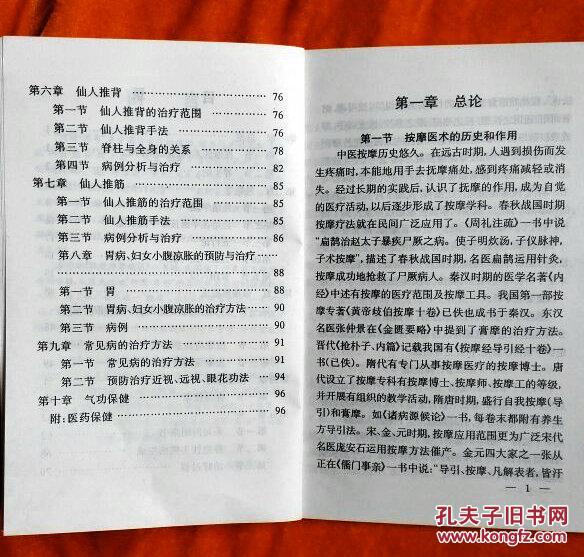 第六章 仙人推背 …………………… 76
第一节 仙人推背的治疗范围 …………… 76
第二节 仙人推背手法 …………………… 76
第三节 脊柱与全身的关系 ……………… 78
第四节 病例分析与治疗 ………………… 82
第七章 仙人推筋 …………………… 85
第一节 仙人推筋的治疗范围 …………… 85
第二节 仙人推筋手法 …………………… 85
第三节 病例分析与治疗 ………………… 86
第八章 胃病、妇女小腹凉胀的预防与治疗 ……
…………………… 88
第一节 胃 …………………… 88
第二节 胃病、妇女小腹凉胀的治疗方法 … 90
第三节 病例 …………………… 90
第九章 常见病的治疗方法 …………… 91
第一节 常见病的治疗方法 …………… 91
第二节 预防治疗近视、远视、眼花功法 … 94
第十章 气功保健 …………………… 96
附:医药保健 …………………… 96
第一章 总论
第一节 按摩医术的历史和作用
中医按摩历史悠久。在远古时期,人遇到损伤而发
生疼痛时,本能地用手去抚摩痛处,感到疼痛减轻或消
失。经过长期的实践后,认识了抚摩的作用,成为自觉
的医疗活动,以后逐步形成了按摩学科。春秋战国时期
按摩疗法就在民间广泛应用了。《周礼注疏》一书中说
“扁鹊治赵太子暴疾尸厥之病。使子明炊汤,子仪脉神,
子术按摩”,描述了春秋战国时期,名医扁鹊运用针灸、
按摩成功地抢救了尸厥病人。秦汉时期的医学名著《内
经》中述有按摩的医疗范围及按摩工具。我国第一部按
摩专著《黄帝歧伯按摩十卷》已佚也成书于秦汉。东汉
名医张仲景在《金匮要略》中提到了膏摩的治疗方法。
晋代《抢朴子、内篇》记载我国有《按摩经导引经十卷》一
书(已佚)。隋代有专门从事按摩医疗的按摩博士。唐
代设立了按摩专科有按摩博士、按摩师、按摩工的等级,
并开展有组织的教学活动,隋唐时期,盛行自我按摩(导
引)和膏摩。如《诸病源候论》一书,每卷末都附有养生
方导引法。宋、金、元时期,按摩应用范围更为广泛宋代
名医庞安石运用按摩方法催产。金元四大家之一张从
正在《儒门事亲》一书中说:“导引、按摩、凡解表者,皆汗
— 1 —
孔夫子旧书网